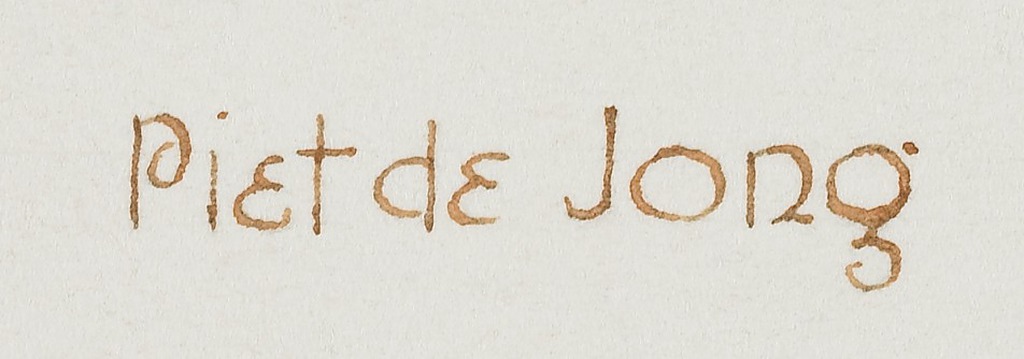 Piet de Jong